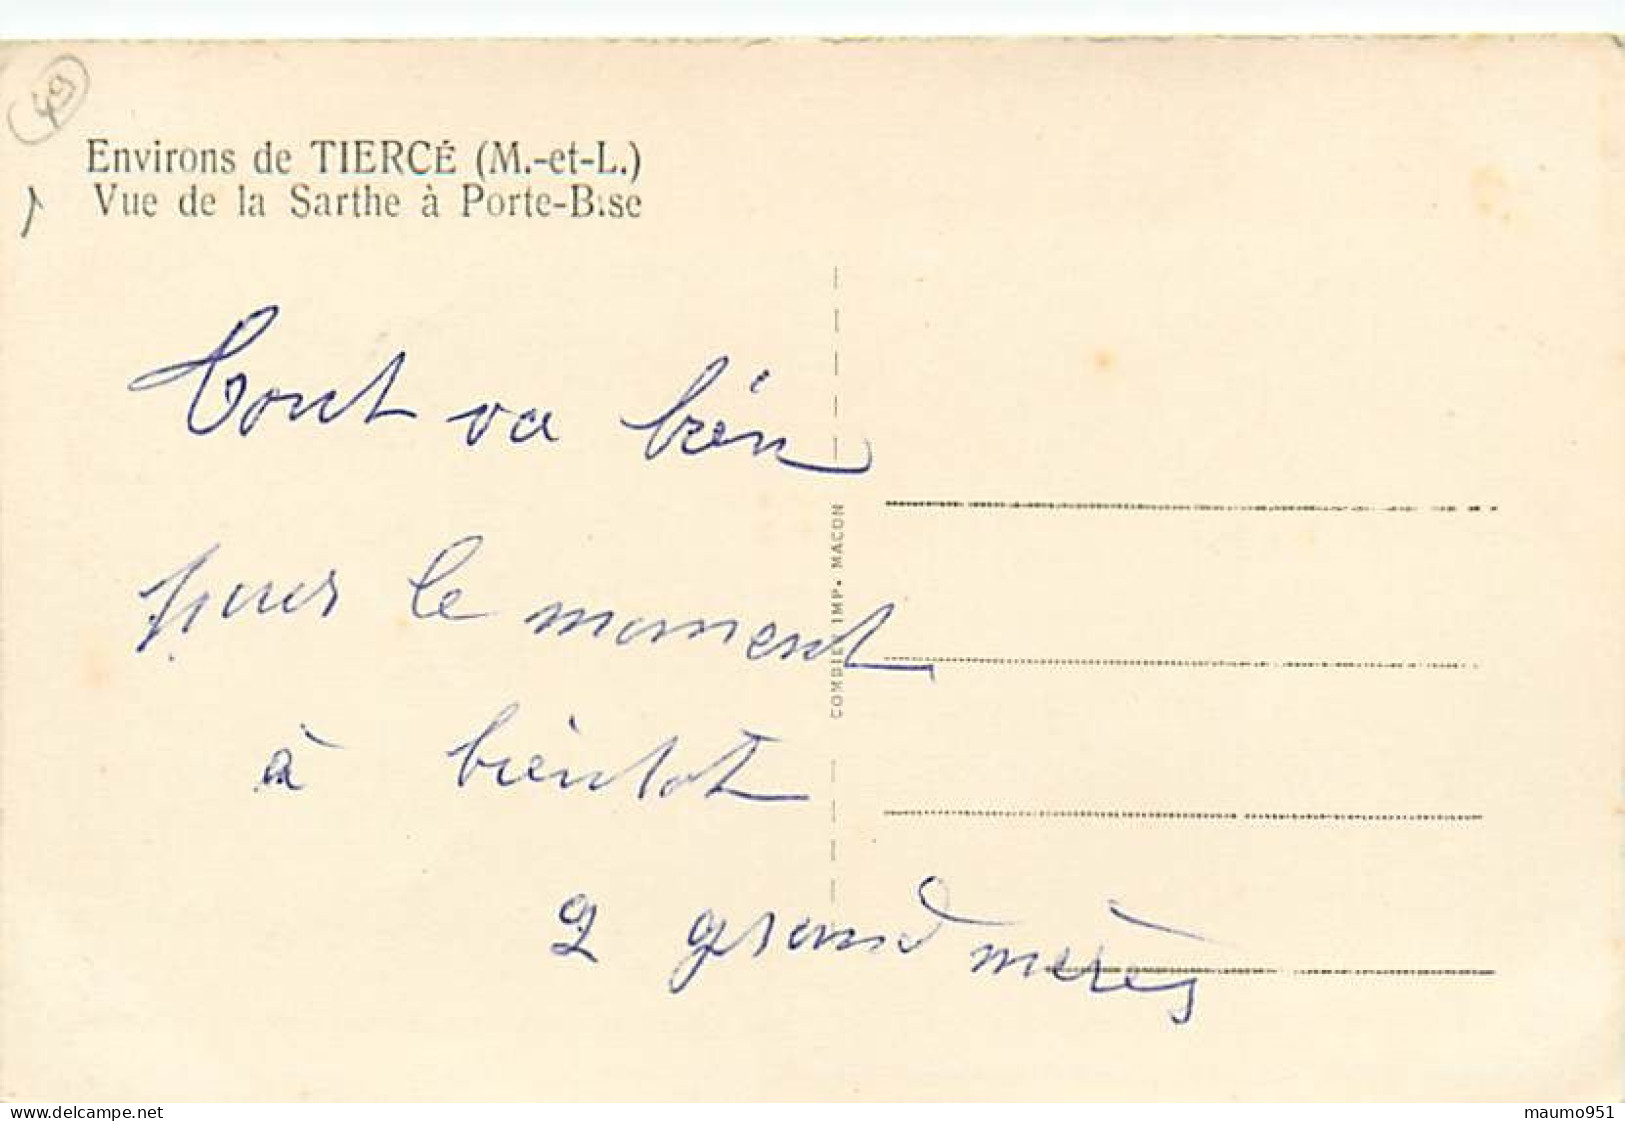 49
Environs de TIERCÉ (M.-et-L.)
Vue de la Sarthe à Porte-Bise
Tout va bien
pour le moment
à bientot
2 grand mères
COMBIER IMP. MACON
www.delcampe.net
maumo951